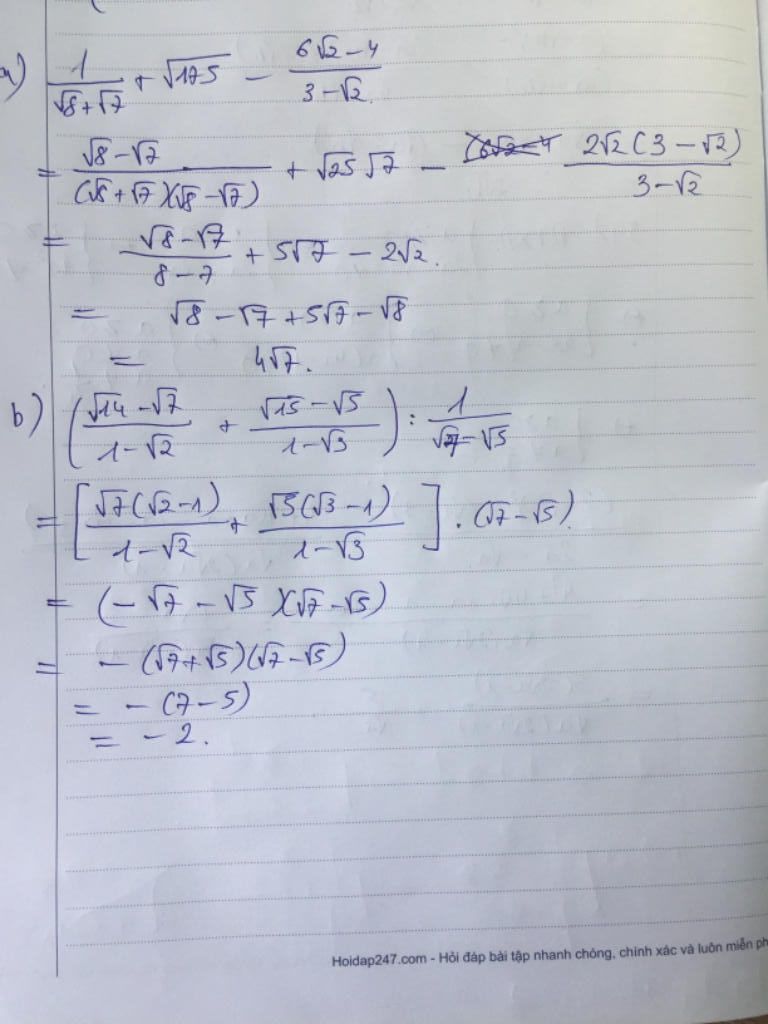 a) 1/(√8+√7) + √175 − (6√2−4)/(3−√2)
= (√8−√7)/((√8+√7)(√8−√7)) + √25 √7 − 2√2(3−√2)/(3−√2)
= (√8−√7)/(8−7) + 5√7 − 2√2.
= √8 − √7 + 5√7 − √8
= 4√7.
b) ((√14−√7)/(1−√2) + (√15−√5)/(1−√3)) : 1/(√7−√5)
= [√7(√2−1)/(1−√2) + √5(√3−1)/(1−√3)] . (√7−√5).
= (−√7 − √5)(√7−√5)
= −(√7+√5)(√7−√5)
= −(7−5)
= −2.
Hoidap247.com - Hỏi đáp bài tập nhanh chóng, chính xác và luôn miễn ph